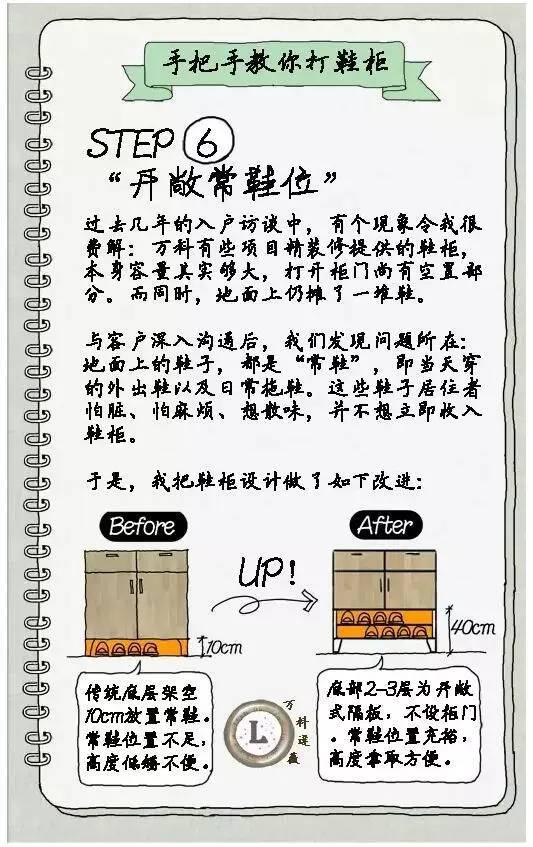 手把手教你打鞋柜
STEP 6
“开敞常鞋位”
过去几年的入户访谈中，有个现象令我很
费解：万科有些项目精装修提供的鞋柜，
本身容量其实够大，打开柜门尚有空置部
分。而同时，地面上仍摊了一堆鞋。
与客户深入沟通后，我们发现问题所在：
地面上的鞋子，都是“常鞋”，即当天穿
的外出鞋以及日常拖鞋。这些鞋子居住者
怕脏、怕麻烦、想散味，并不想立即收入
鞋柜。
于是，我把鞋柜设计做了如下改进：
Before
After
UP!
10cm
40cm
传统底层架空
10cm放置常鞋。
常鞋位置不足，
高度低矮不便。
L
万科逯薇
底部2-3层为开敞
式隔板，不设柜门
。常鞋位置充裕，
高度拿取方便。